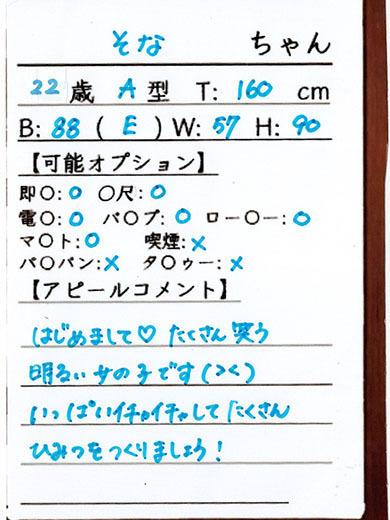 そな ちゃん
22歳 A型 T: 160 cm
B: 88 ( E ) W: 57 H: 90
【可能オプション】
即〇:o 〇尺:o
電〇:o バ〇ブ:o ロー〇ー:o
マ〇ト:o 喫煙:x
パ〇パン:x タ〇ゥー:x
【アピールコメント】
はじめまして♡ たくさん笑う
明るい女の子です(><)
いっぱいイチャイチャして たくさん
ひみつをつくりましょう!